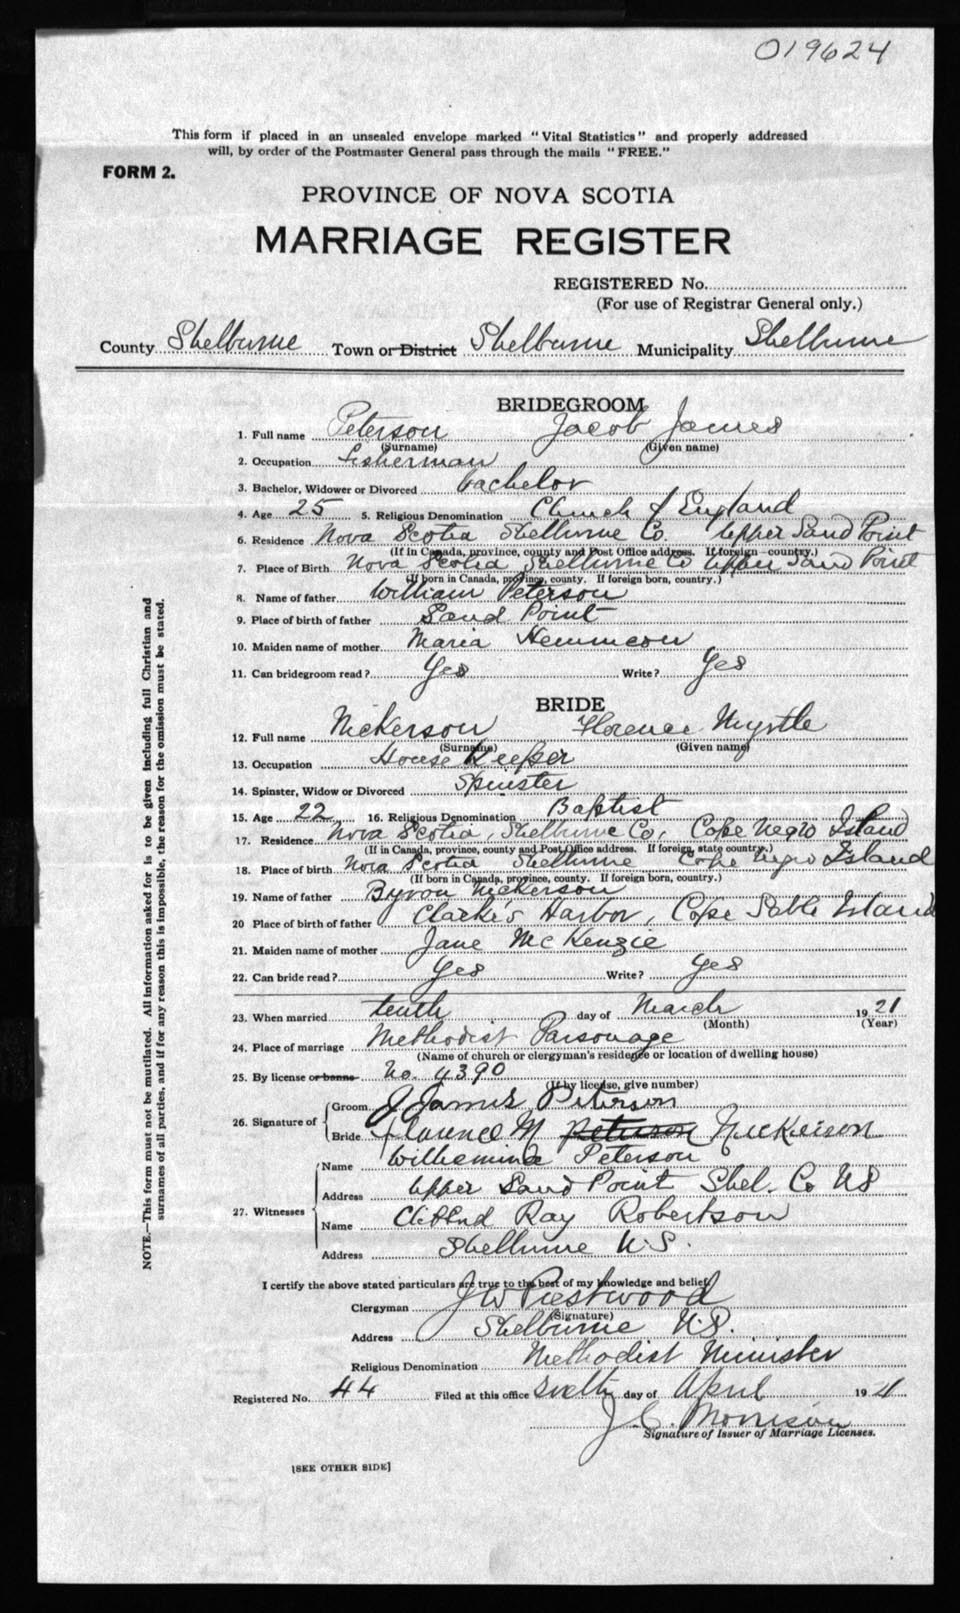 019624
This form if placed in an unsealed envelope marked "Vital Statistics" and properly addressed
will, by order of the Postmaster General pass through the mails "FREE."
FORM 2.
PROVINCE OF NOVA SCOTIA
MARRIAGE REGISTER
REGISTERED No.
(For use of Registrar General only.)
County Shelburne Town or District Shelburne Municipality Shelburne
BRIDEGROOM
1. Full name Peterson Jacob James
(Surname) (Given name)
2. Occupation Fisherman
3. Bachelor, Widower or Divorced bachelor
4. Age 25 5. Religious Denomination Church of England
6. Residence Nova Scotia Shelburne Co. Upper Sand Point
(If in Canada, province, county and Post Office address. If foreign—country.)
7. Place of Birth Nova Scotia Shelburne Co Upper Sand Point
(If born in Canada, province, county. If foreign born, country.)
8. Name of father William Peterson
9. Place of birth of father Sand Point
10. Maiden name of mother Maria Hemmeon
11. Can bridegroom read? Yes Write? Yes
BRIDE
12. Full name Nickerson Florence Myrtle
(Surname) (Given name)
13. Occupation House Keeper
14. Spinster, Widow or Divorced Spinster
15. Age 22 16. Religious Denomination Baptist
17. Residence Nova Scotia, Shelburne Co, Cape Negro Island
(If in Canada, province, county and Post Office address. If foreign, state country.)
18. Place of birth Nova Scotia Shelburne Cape Negro Island
(If born in Canada, province, county. If foreign born, country.)
19. Name of father Byron Nickerson
20 Place of birth of father Clarke's Harbor, Cape Sable Island
21. Maiden name of mother Jane McKenzie
22. Can bride read? Yes Write? Yes
23. When married tenth day of March 1921
(Month) (Year)
24. Place of marriage Methodist Parsonage
(Name of church or clergyman's residence or location of dwelling house)
25. By license or banns No. 4390
(If by license, give number)
26. Signature of Groom J James Peterson
Bride Florence M Peterson Nickerson
27. Witnesses Name Wilhemina Peterson
Address Upper Sand Point Shel. Co NS
Name Clifford Ray Robertson
Address Shelburne N.S.
I certify the above stated particulars are true to the best of my knowledge and belief.
Clergyman J W Prestwood
(Signature)
Address Shelburne N.S.
Religious Denomination Methodist Minister
Registered No. 44 Filed at this office day of April 1921
J. C. Morrison
Signature of Issuer of Marriage Licenses.
[SEE OTHER SIDE]
NOTE.—This form must not be mutilated. All information asked for is to be given including full Christian and
surnames of all parties, and if for any reason this is impossible, the reason for the omission must be stated.